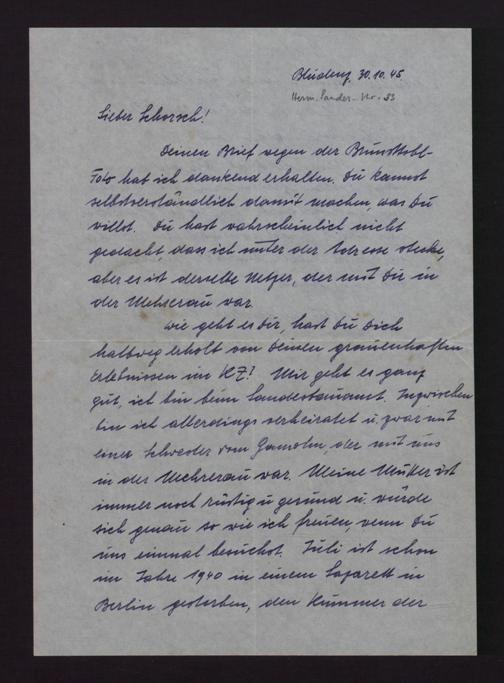 Bludenz, 30.10.45
Herm. Sander-Str. 33
Lieber Schorsch!
Deinen Brief wegen der
Foto hat ich dankend erhalten. Du kannst
selbstverständlich damit machen, was Du
willst. Du hast wahrscheinlich nicht
gedacht, dass ich unter der Adresse stecke,
aber es ist derselbe Netzer, der mit Dir in
der Mehrerau war.
Wie geht es Dir, hast Du Dich
halbweg erholt von Deinen grauenhaften
Erlebnissen im KZ? Mir geht es ganz
gut, ich bin beim Landesbauamt. Inzwischen
bin ich allerdings verheiratet u. zwar mit
einer Schwester vom Gamohn, der mit uns
in der Mehrerau war. Meine Mutter ist
immer noch rüstig u gesund u. würde
sich genau so wie ich freuen, wenn Du
uns einmal besuchst. Juli ist schon
im Jahre 1940 in einem Lazarett in
Berlin gestorben, den Kummer der